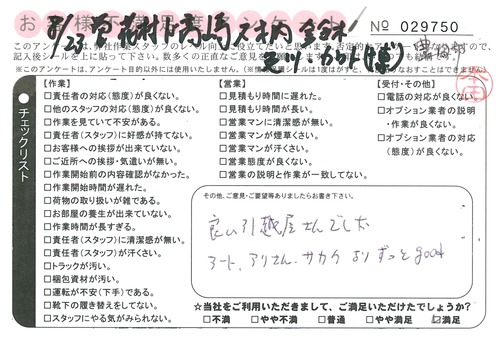 お
No 029750
8/23
このアンケートは、弊社作業スタッフのレベル向上に役立てたいと思います。
記入後シールを上に貼って下さい。数多くの正直なご意見を
※このアンケートは、アンケート目的以外には使用いたしません。
チェックリスト
【作業】
□責任者の対応(態度)が良くない。
□他のスタッフの対応(態度)が良くない。
□作業を見ていて不安がある。
□責任者(スタッフ)に好感が持てない。
□お客様への挨拶が出来ていない。
□ご近所への挨拶・気遣いが無い。
□作業開始前の内容確認がなかった。
□作業開始時間が遅れた。
□荷物の取り扱いが雑である。
□お部屋の養生が出来ていない。
□作業時間が長すぎる。
□責任者(スタッフ)に清潔感が無い。
□責任者(スタッフ)が汗くさい。
□トラックが汚い。
□梱包資材が汚い。
□運転が不安(下手)である。
□靴下の履き替えをしてない。
□スタッフにやる気がみられない。
【営業】
□見積もり時間に遅れた。
□見積もり時間が長い。
□営業マンに清潔感が無い。
□営業マンが煙草くさい。
□営業マンが汗くさい。
□営業態度が良くない。
□営業の説明と作業が一致してない。
【受付・その他】
□電話の対応が良くない。
□オプション業者の説明
・作業が良くない。
□オプション業者の対応
(態度)が良くない。
その他、ご意見・ご要望等ありましたらお書き下さい。
良い引越屋さんでした
アート、アリさん、サカイ よりずっとgood
☆当社をご利用いただきまして、ご満足いただけたでしょうか?
□不満 □やや不満 □普通 □やや満足 □満足